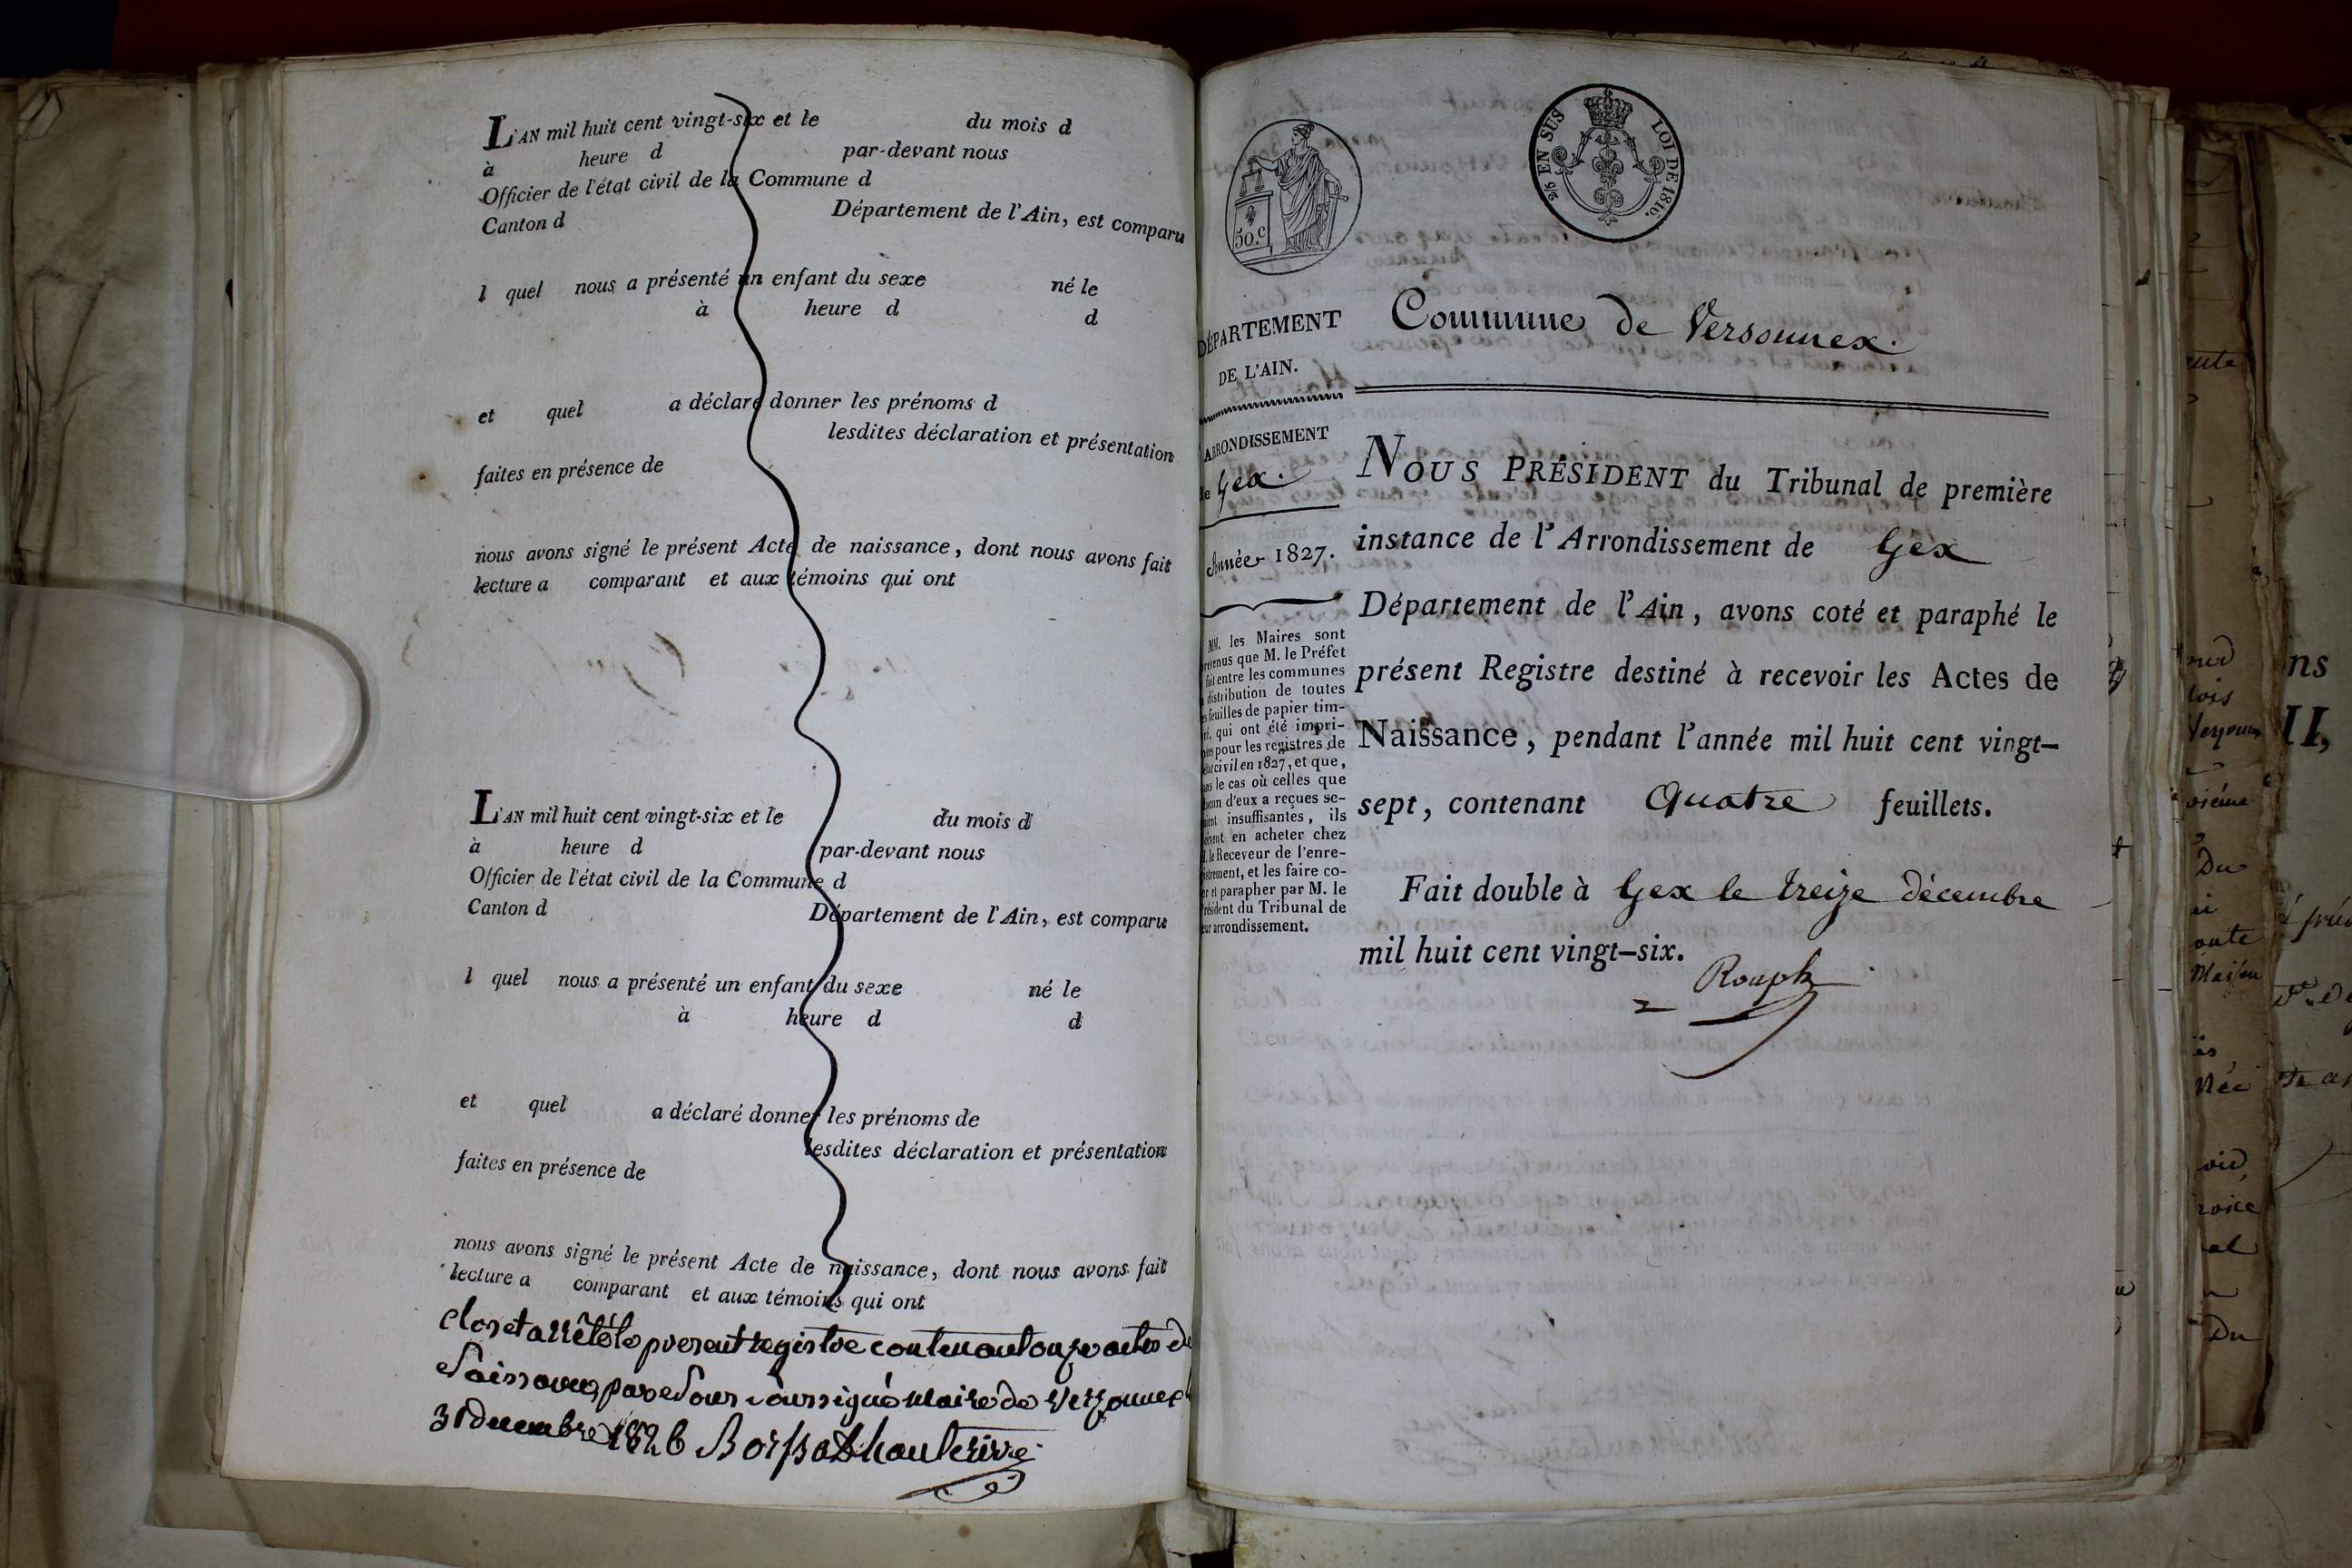 L'AN mil huit cent vingt-six et le du mois d
à heure d par-devant nous
Officier de l'état civil de la Commune d
Canton d Département de l'Ain, est comparu
l quel nous a présenté un enfant du sexe né le
à heure d d
et quel a déclaré donner les prénoms d
lesdites déclaration et présentation
faites en présence de
nous avons signé le présent Acte de naissance, dont nous avons fait
lecture a comparant et aux témoins qui ont
L'AN mil huit cent vingt-six et le du mois d
à heure d par-devant nous
Officier de l'état civil de la Commune d
Canton d Département de l'Ain, est comparu
l quel nous a présenté un enfant du sexe né le
à heure d d
et quel a déclaré donner les prénoms de
lesdites déclaration et présentation
faites en présence de
nous avons signé le présent Acte de naissance, dont nous avons fait
lecture a comparant et aux témoins qui ont
Clos et arrêté le present registre contenant onze actes de
Naissance, par Nous soussigné Maire de Versonnex
31 decembre 1826
50.c
EN SUS LOI DE 1816.
DÉPARTEMENT
DE L'AIN.
ARRONDISSEMENT
de Gex.
Année 1827.
MM. les Maires sont
prévenus que M. le Préfet
fait entre les communes
la distribution de toutes
les feuilles de papier tim-
bré, qui ont été impri-
mées pour les registres de
l'état civil en 1827, et que,
dans le cas où celles que
chacun d'eux a reçues se-
roient insuffisantes, ils
doivent en acheter chez
M. le Receveur de l'enre-
gistrement, et les faire co-
ter et parapher par M. le
Président du Tribunal de
leur arrondissement.
Commune de Versonnex.
NOUS PRÉSIDENT du Tribunal de première
instance de l'Arrondissement de Gex
Département de l'Ain, avons coté et paraphé le
présent Registre destiné à recevoir les Actes de
Naissance, pendant l'année mil huit cent vingt-
sept, contenant Quatre feuillets.
Fait double à Gex le treize décembre
mil huit cent vingt-six.
Rouph